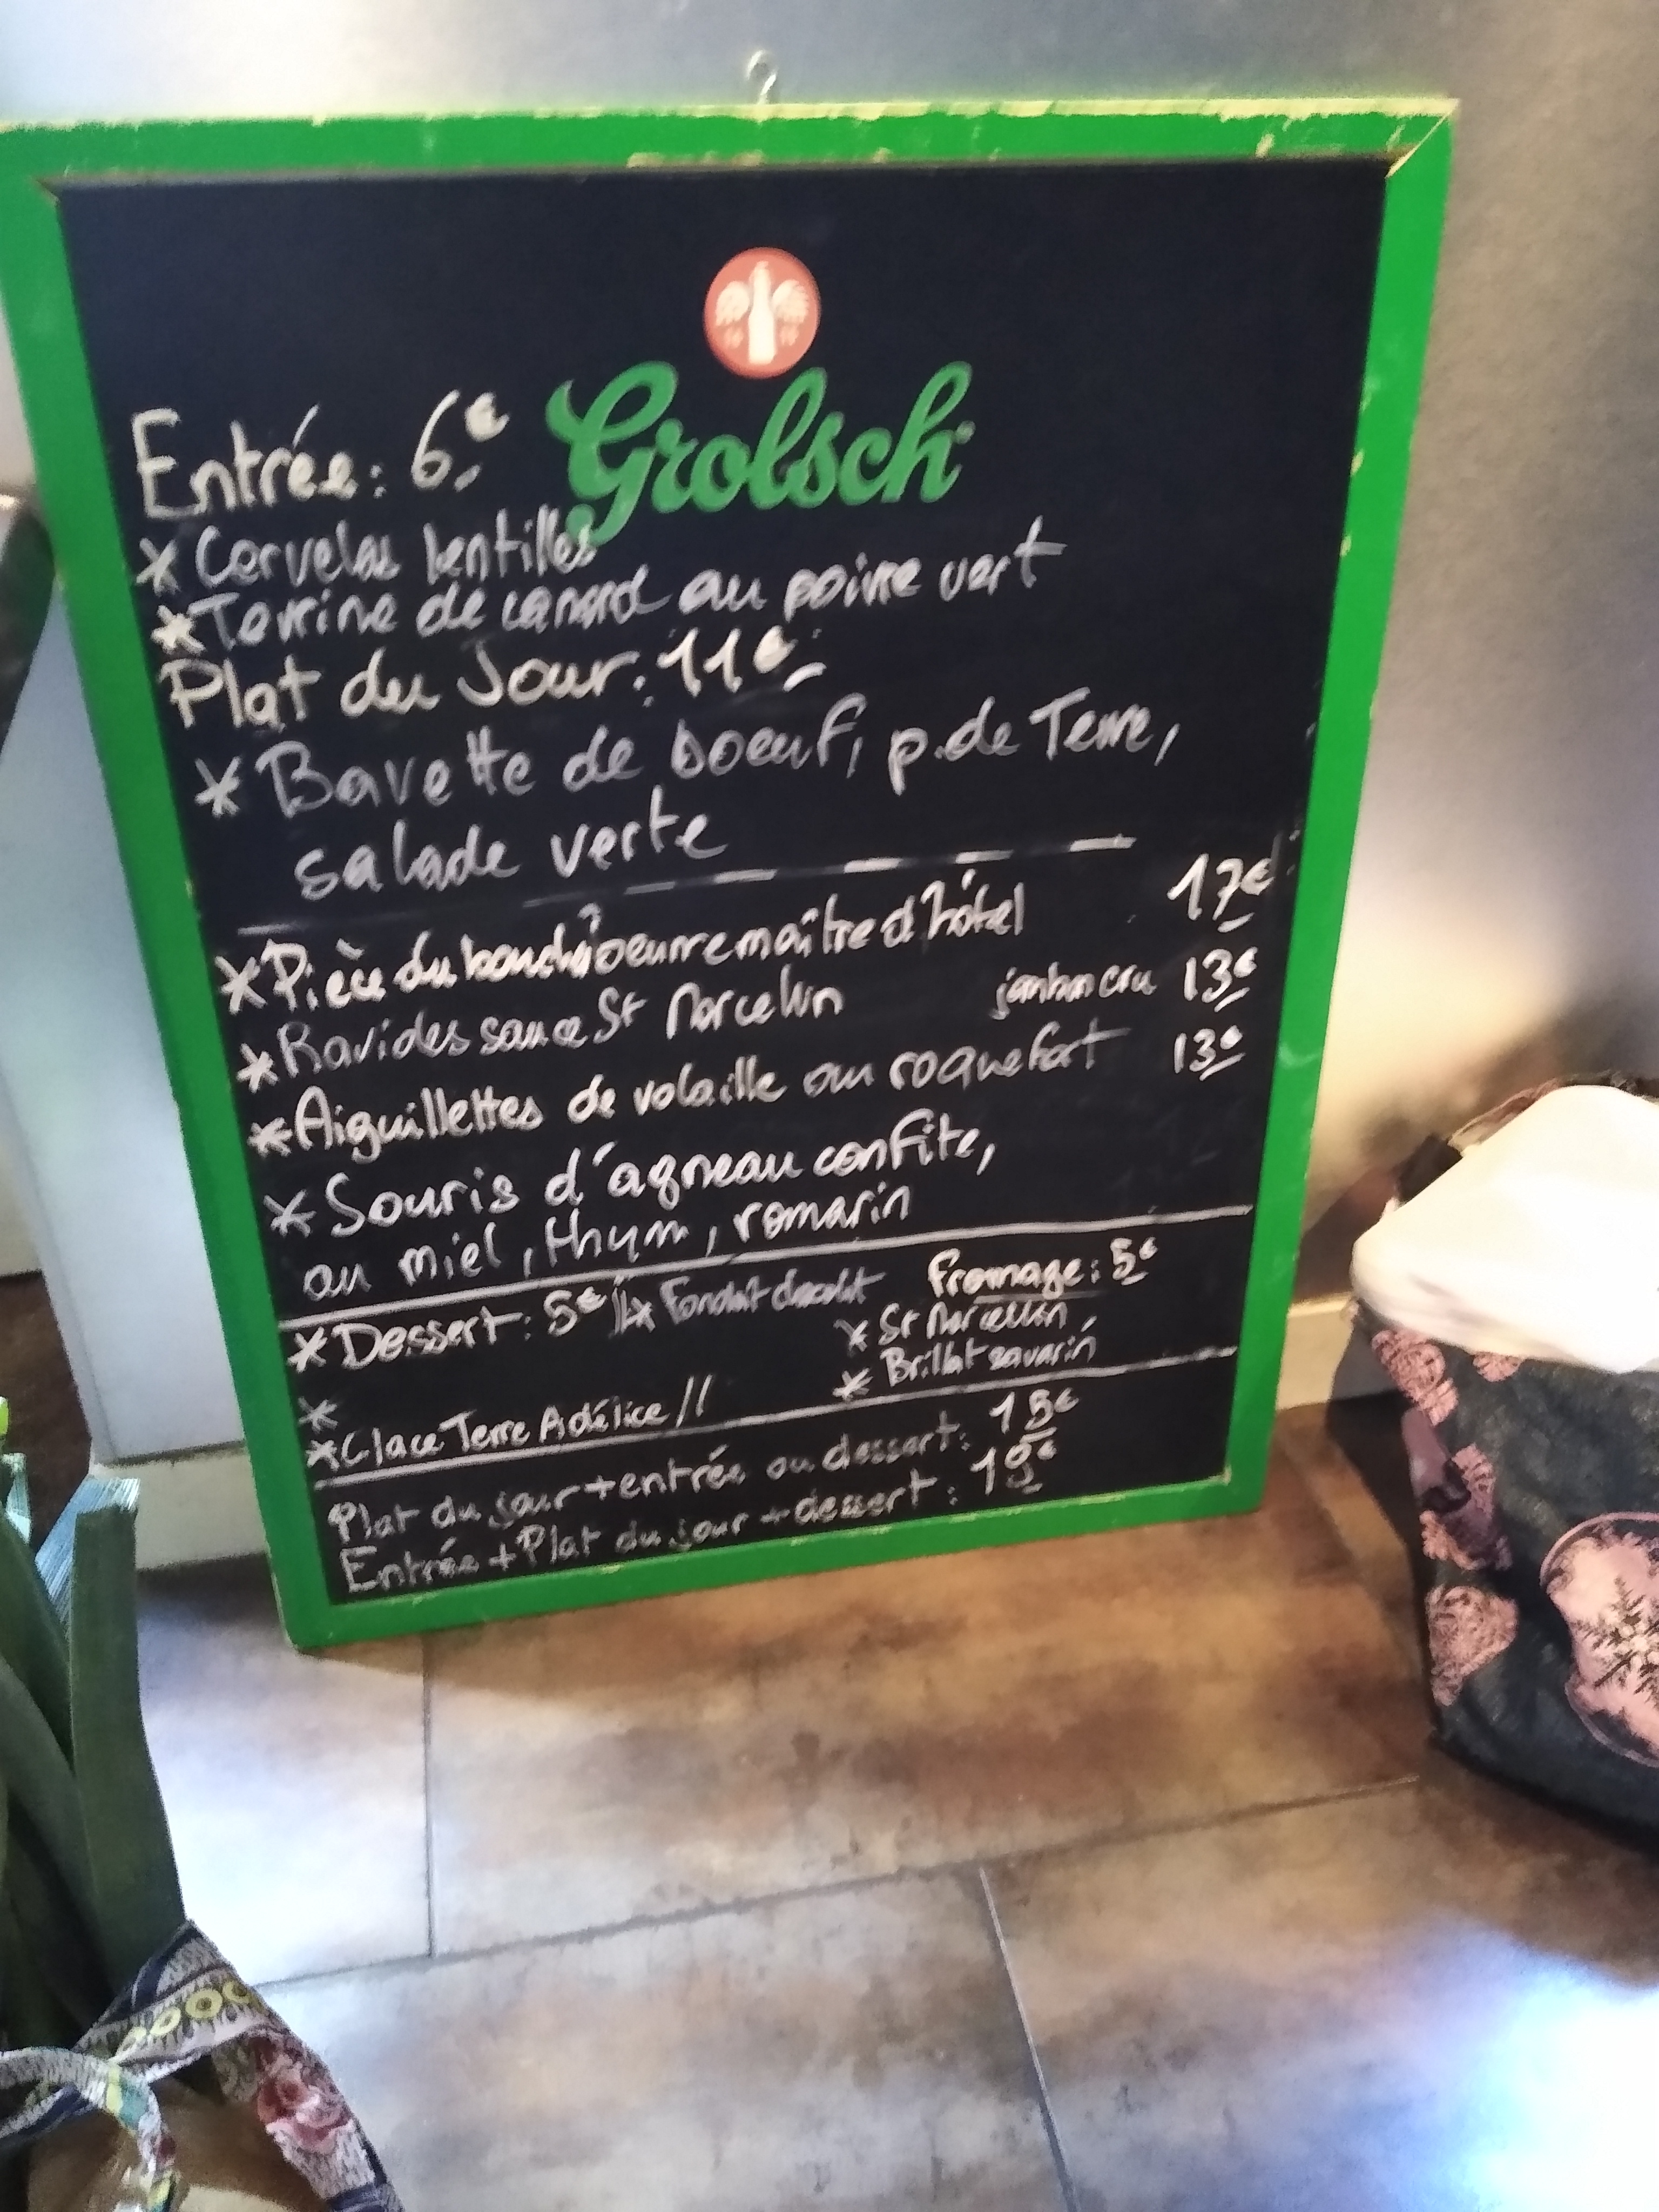 Grolsch
Entrée: 6€
* Cervelas lentilles
* Terrine de canard au poivre vert
Plat du Jour: 11€
* Bavette de boeuf, p.de Terre,
salade verte
* Pièce du bouch, beurre maître d'hôtel 17€
* Ravioles sauce St Marcellin jambon cru 13€
* Aiguillettes de volaille au roquefort 13€
* Souris d'agneau confite,
au miel, thym, romarin
* Dessert: 5€ // * Fondant chocolat
*
* Glace Terre Adélice //
Fromage: 5€
* St Marcellin,
* Brillat savarin
Plat du jour + entrée ou dessert: 15€
Entrée + Plat du jour + dessert: 19€